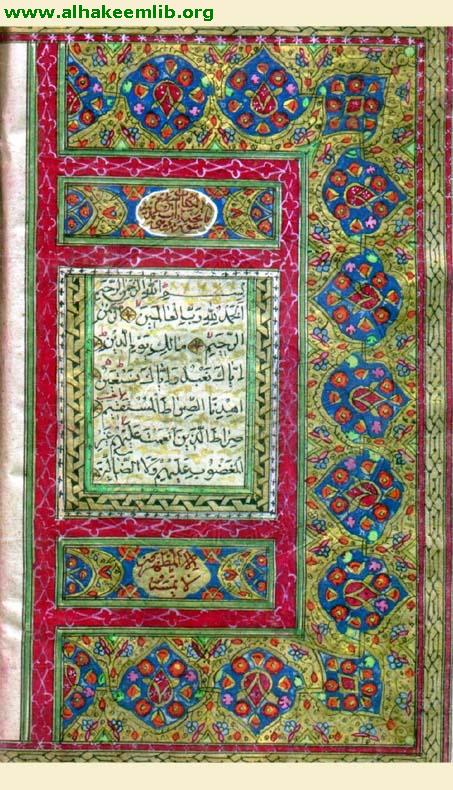 www.alhakeemlib.org
بسم الله الرحمن الرحيم
الحمد لله رب العالمين الرحمن
الرحيم مالك يوم الدين
اياك نعبد واياك نستعين
اهدنا الصراط المستقيم
صراط الذين انعمت عليهم غير
المغضوب عليهم ولا الضالين
الا المطهرون
لا يمسه